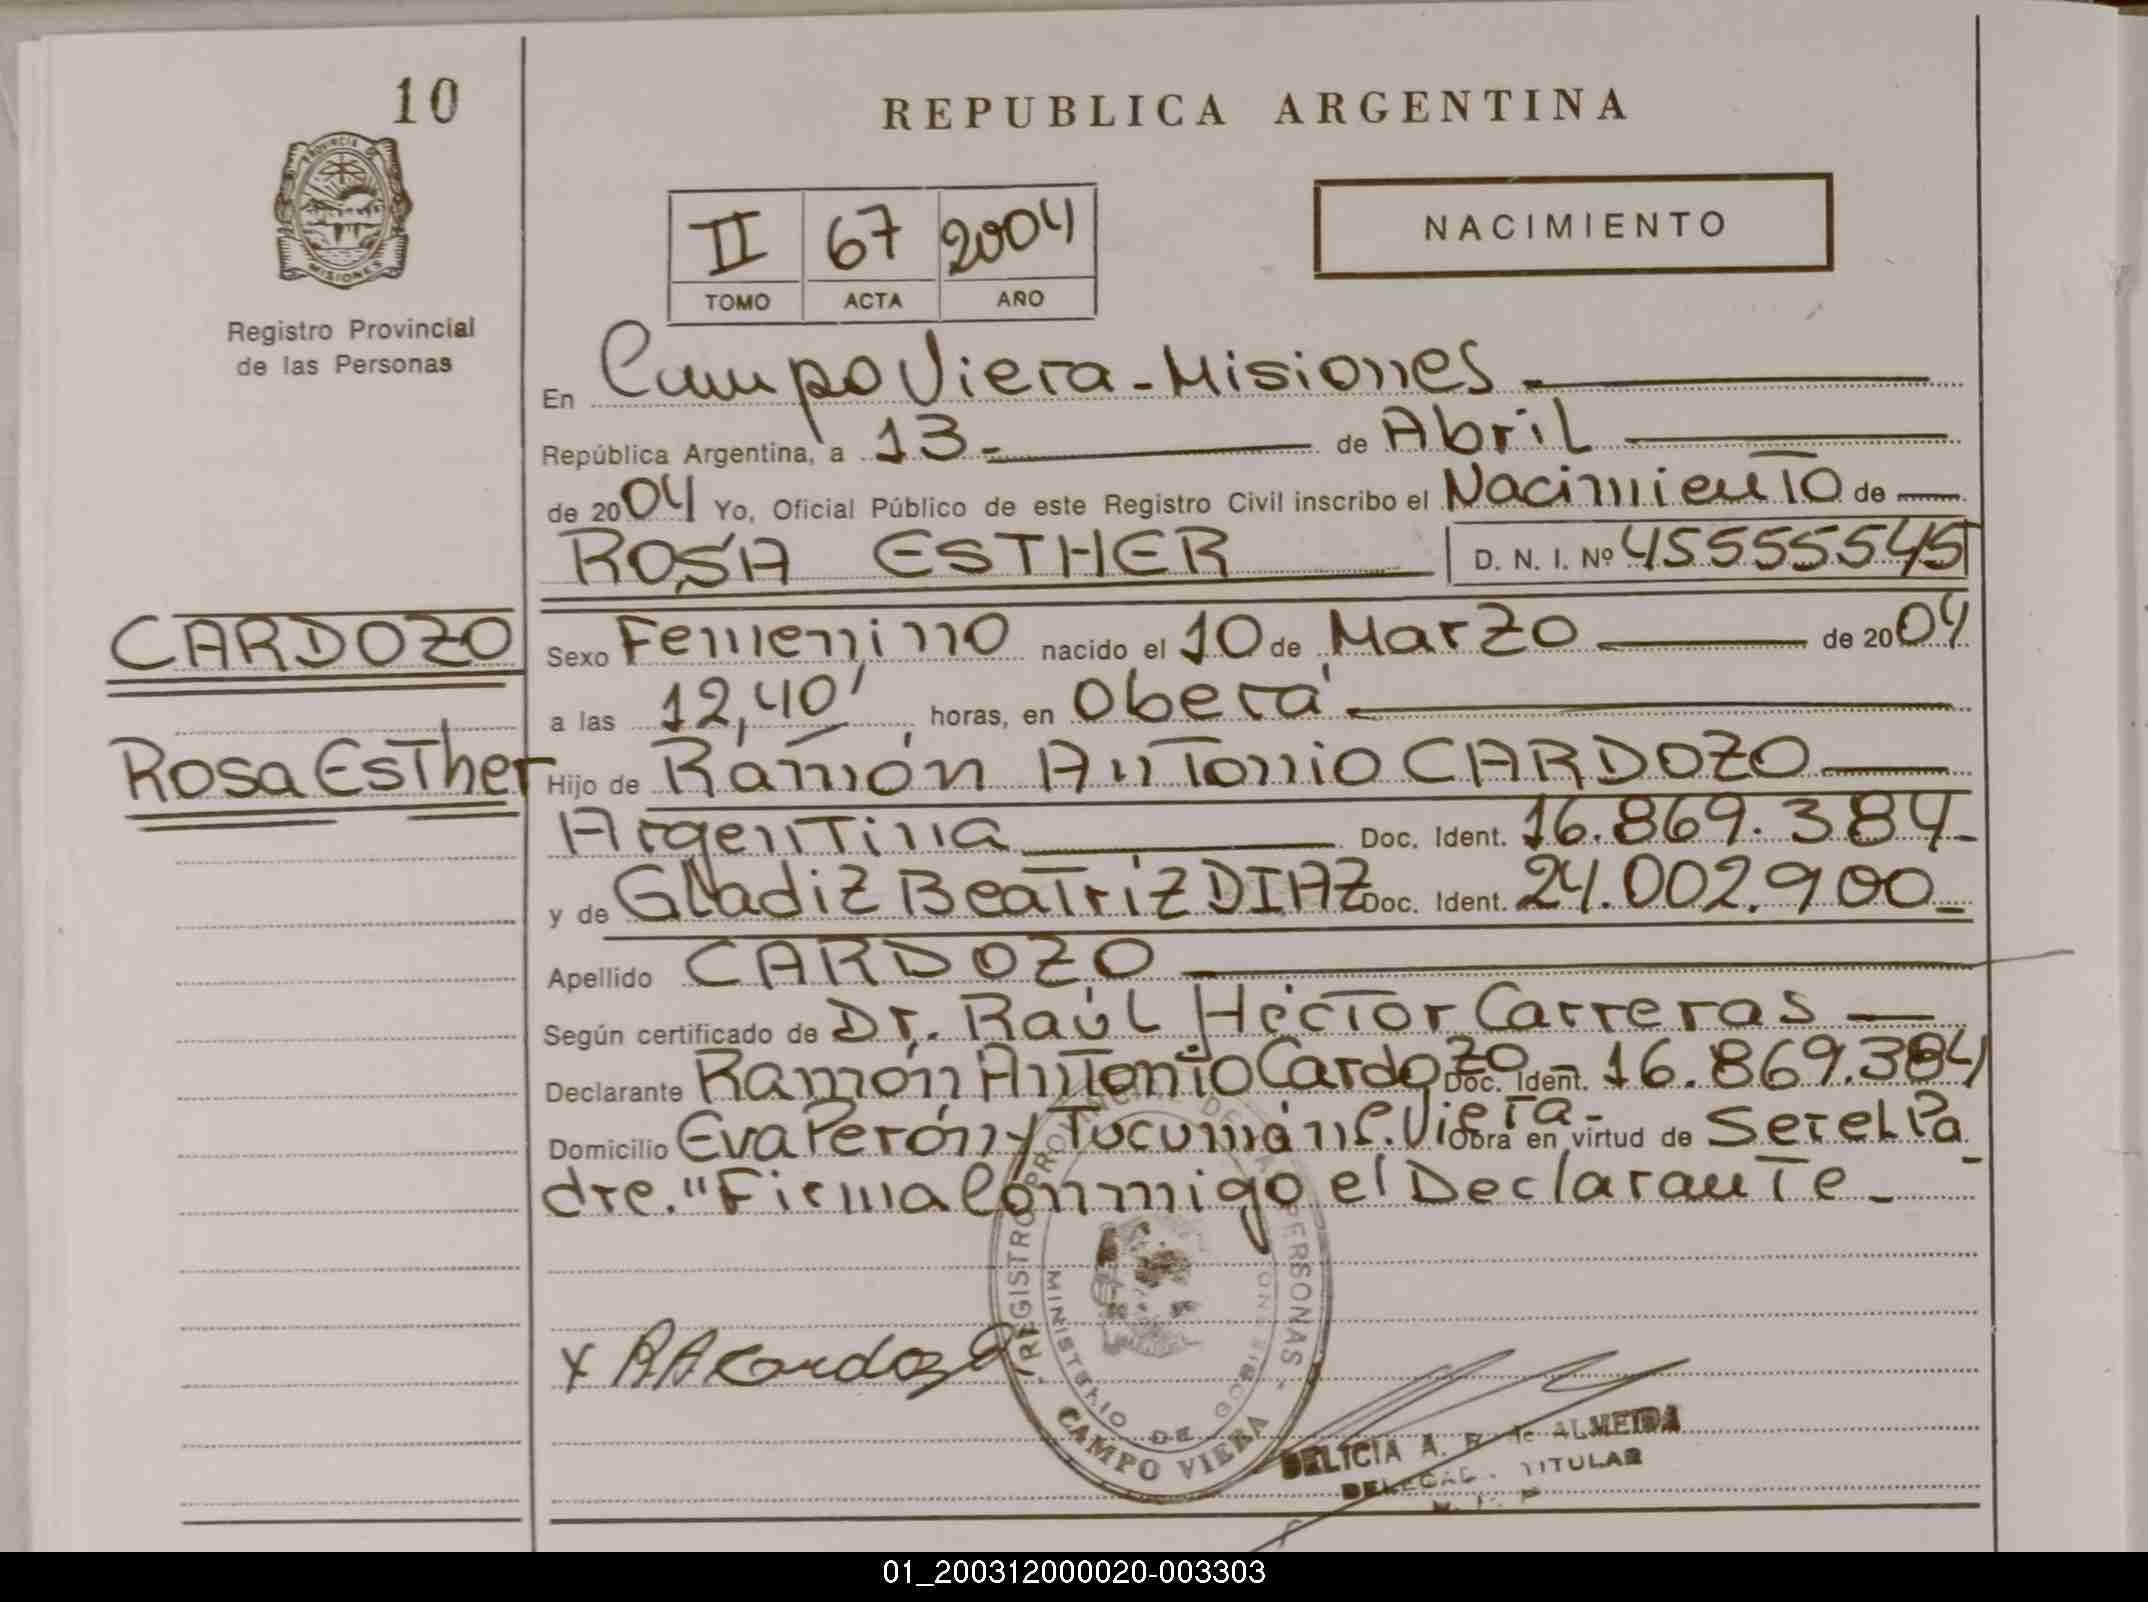 10
PROVINCIA DE
MISIONES
Registro Provincial
de las Personas
CARDOZO
Rosa Esther
REPUBLICA ARGENTINA
II 67 2004
TOMO ACTA AÑO
NACIMIENTO
En Campo Viera - Misiones
República Argentina, a 13 - de Abril
de 2004 Yo, Oficial Público de este Registro Civil inscribo el Nacimiento de
ROSA ESTHER D. N. I. Nº 45555545
Sexo Femenino nacido el 10 de Marzo de 2004
a las 12,40' horas, en Oberá
Hijo de Ramón Antonio CARDOZO
Argentina Doc. Ident. 16.869.384-
y de Gladiz Beatriz DIAZ Doc. Ident. 24.002.900-
Apellido CARDOZO
Según certificado de Dr. Raúl Héctor Carreras
Declarante Ramón Antonio Cardozo Doc. Ident. 16.869.384
Domicilio Eva Perón y Tucumán C. Viera- Obra en virtud de Ser el Pa
dre. "Firma Conmigo el Declarante -
x RACardozo
REGISTRO PROVINCIAL DE LAS PERSONAS
MINISTERIO DE
CAMPO VIERA
DELICIA A. de ALMEIDA
TITULAR
01_200312000020-003303